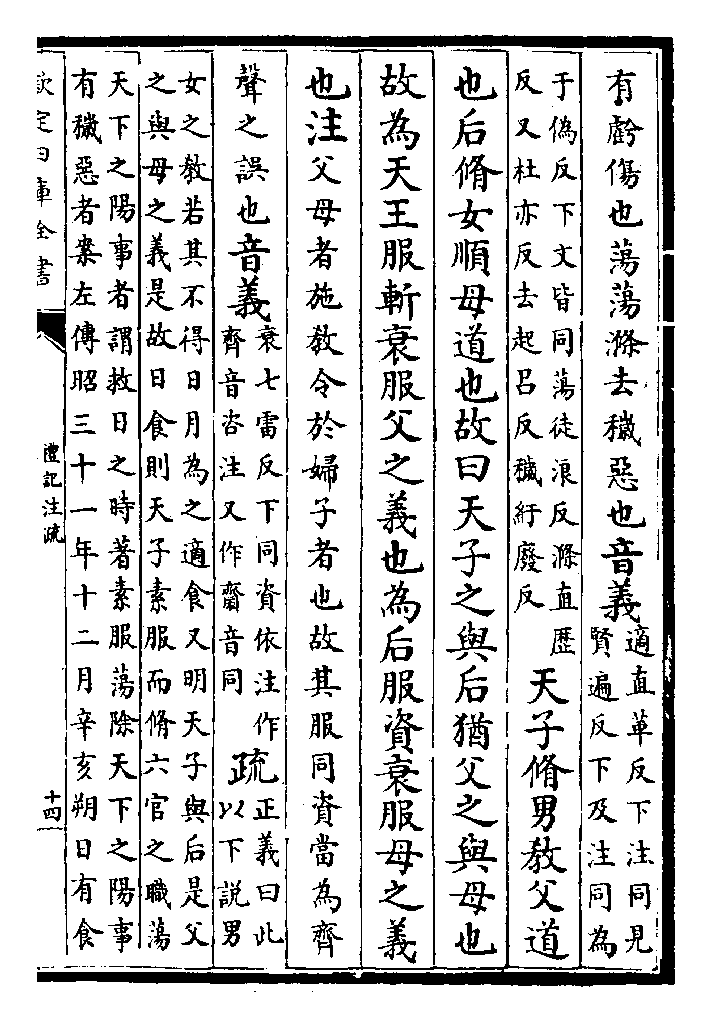 有虧傷也蕩蕩滌去穢惡也音義適直革反下注同見
賢遍反下及注同為
于偽反下文皆同蕩徒浪反滌直歷
反又杜亦反去起呂反穢紆廢反
天子脩男教父道
也后脩女順母道也故曰天子之與后猶父之與母也
故為天王服斬衰服父之義也為后服資衰服母之義
也注父母者施教令於婦子者也故其服同資當為齊
聲之誤也音義衰七雷反下同資依注作
齊音咨注又作齋音同
疏正義曰此
以下說男
女之教若其不得日月為之適食又明天子與后是父
之與母之義是故日食則天子素服而脩六官之職蕩
天下之陽事者謂救日之時著素服蕩除天下之陽事
有穢惡者案左傳昭三十一年十二月辛亥朔日有食
欽定四庫全書
禮記注疏
十四